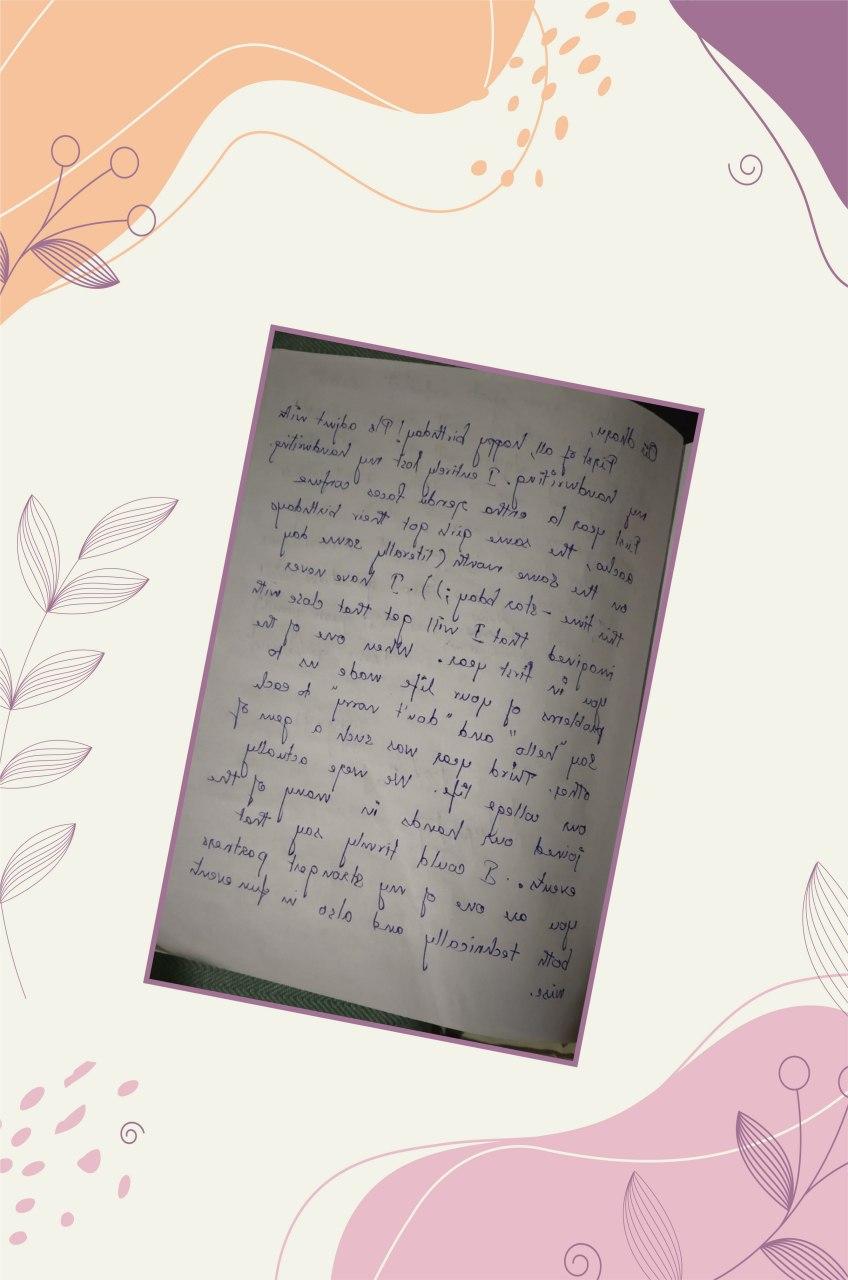 dhayu,
First of all, happy birthday! Pls adjust with
my handwriting. I entirely lost my handwriting.
First year la entha rendu faces confuse
aacho, the same girls got their birthdays
on the same month (literally same day
this time - star bday ;)). I have never
imagined that I will got that close with
you in first year. When one of the
problems of your life made us to
say "hello" and "don't worry" to each
other. Third year was such a gem of
our college life. We were actually
joined our hands in many of the
events. I could firmly say that
you are one of my strongest partners
both technically and also in fun event
wise.